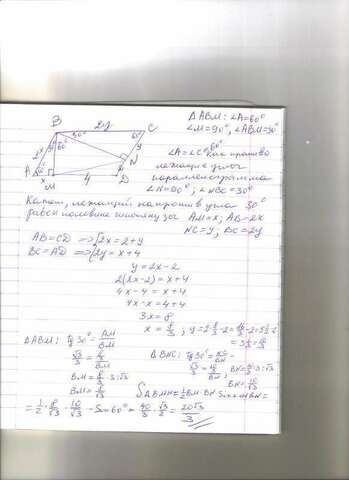 B 2y C
30° 60°
2x 30° 60° y
N
A x M 4 2 D
△ABM: ∠A=60°
∠M=90°, ∠ABM=30°
∠A=∠C=60° как противо
лежащие углы
параллелограмма
∠N=90°, ∠NBC=30°
Катет, лежащий напротив угла 30°
равен половине гипотенузы AM=x; AB=2x
NC=y; BC=2y
AB=CD ⟹ {2x=2+y
BC=AD ⟹ {2y=x+4
y=2x-2
2(2x-2)=x+4
4x-4=x+4
4x-x=4+4
3x=8
x=8/3; y=2·8/3-2=16/3-2=5 1/3-2
=3 1/3=10/3
△ABM: tg30°=AM/BM
√3/3=8/3/BM
BM=8/3·3:√3
BM=8/√3
△BNC: tg30°=NC/BN
√3/3=10/3/BN; BN=10/3·3:√3
BN=10/√3
S△BMN=1/2 BM·BN·Sin∠MBN=
=1/2·8/√3·10/√3·Sin60°=40/3·√3/2=20√3/3